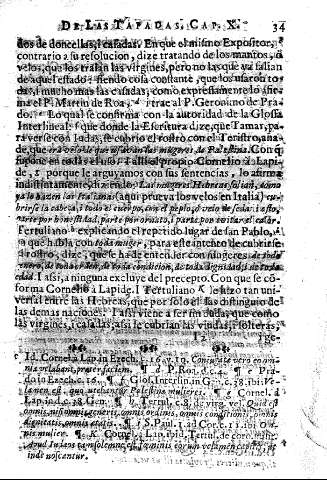 DE LAS TAPADAS, CAP. X. 34
dos de doncellas, i casadas. En que el mismo Expositor,
contrario a su resolucion, dize tratando de los mantos, o
velos, que los traían las virgines, pero no las que ya salian
de aquel estado: siendo cosa constante, que los usaron to
das, i mucho mas las casadas, como expressamente lo afir
ma el P. Martin de Roa, i trae al P. Geronimo de Pra-
do. Lo qual se confirma con la autoridad de la Glossa
Interlineal: que donde la Escritura dize, que Tamar, pa
ra verse con Iudas, se cubrio el rostro con el Teristro, aña-
de, que era velo de que usavan las mugeres de Palestina. Con q
supone en todas el uso. I assi el propio Cornelio à Lapi-
de, porque le arguyamos con sus sentencias, lo afirma
indistintamente, diziendo: Las mugeres Hebreas solian, como
ya lo hazen en Italia (aqui prueva los velos en Italia) cu-
brirse la cabeça, i todo el cuerpo, con el peplo, o velo de seda: i esto,
parte por honestidad, parte por ornato, i parte por evitar el calor.
Tertuliano explicando el repetido lugar de san Pablo,
a que habla con toda muger, para este intento de cubrirse
rostro, dize, que se ha de entender con mugeres de todo
genero, de todo orden, de toda condicion, de toda dignidad, de toda
edad. I assi, ninguna excluye del precepto. Con que se co-
forma Cornelio à Lapide. I Tertuliano le hizo tan uni-
versal entre las Hebreas, que por solo el las distinguio de
las demas naciones: I assi viene a ser sin duda, que como
las virgines, i casadas, assi le cubrian las viudas, i solteras,
Id. Cornel. à Lap. in Ezech. c. 16. v. 10.
d P. Roa, d. c. 4. e Pra-
do in Ezech. c. 16. f Glos. Interlin. in Gen. c. 38. ibi:
g Cornel. à
Lap. in d. c. 38. Gen. h Tertul. c. 8. de virg. vel. Quid est
omnis, nisi omnis generis, omnis ordinis, omnis conditionis, omnis
dignitatis, omnis ætatis. i S. Paul. 1. ad Cor. c. 11. ibi: Om-
nis mulier. K. Cornel. à Lap. ibid. Tertul. de coro. milit.
Apud Iudæos tam solemne est fœminis eorum velamen capitis, ut
inde noscantur.